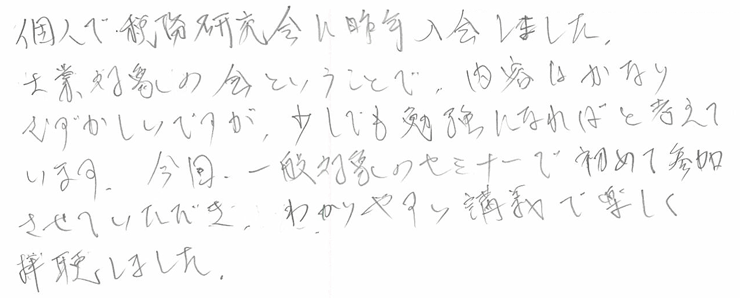 個人で税務研究会に昨年入会しました。
士業対象の会ということで、内容はかなり
むずかしいですが、少しでも勉強になればと考えて
います。今回、一般対象のセミナーで初めて参加
させていただき、わかりやすい講義で楽しく
拝聴しました。